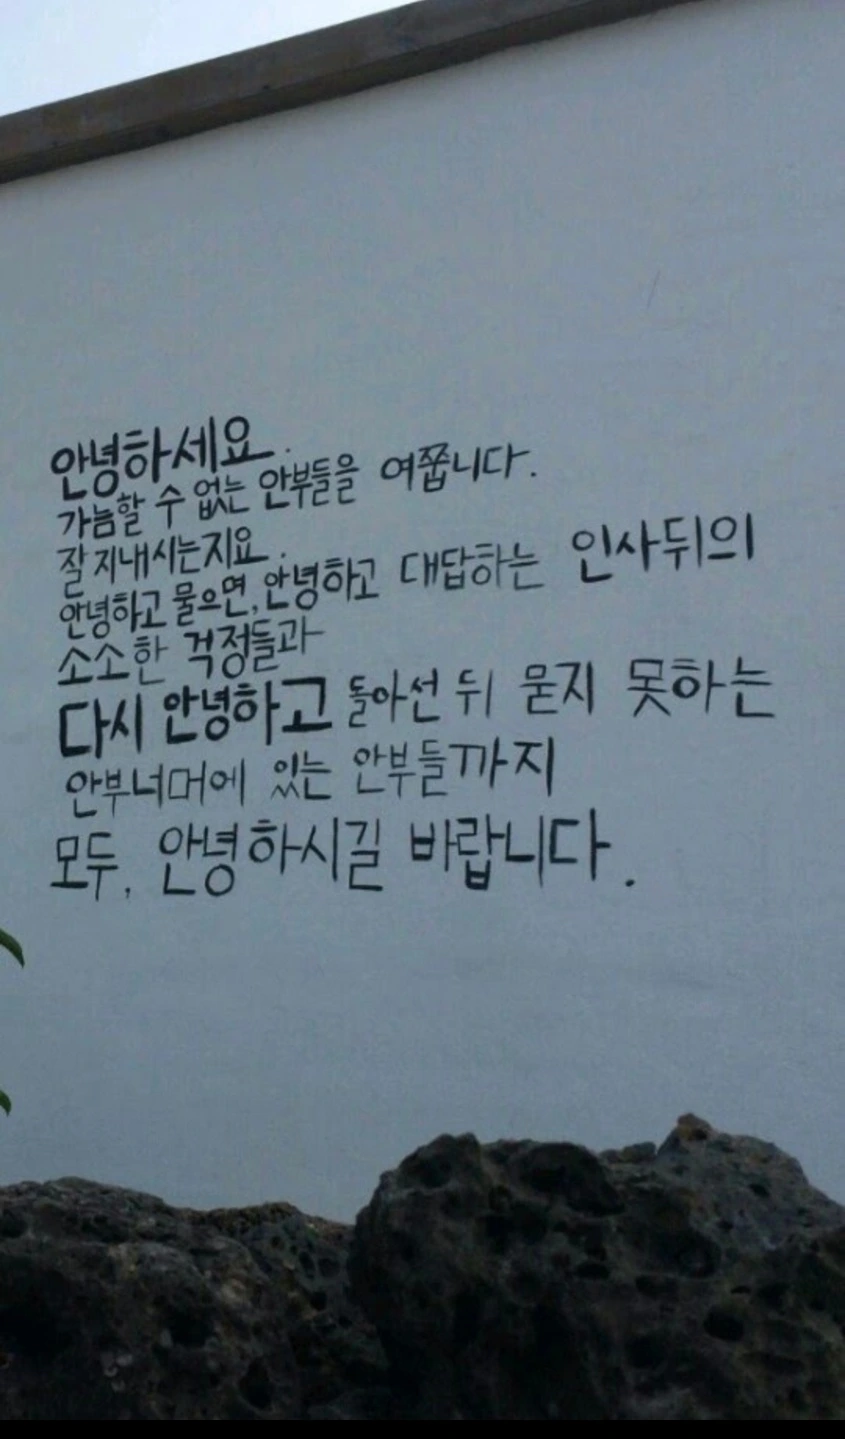 안녕하세요.
가늠할 수 없는 안부들을 여쭙니다.
잘 지내시는지요.
안녕하고 물으면, 안녕하고 대답하는 인사뒤의
소소한 걱정들과
다시 안녕하고 돌아선 뒤 묻지 못하는
안부너머에 있는 안부들까지
모두, 안녕하시길 바랍니다.